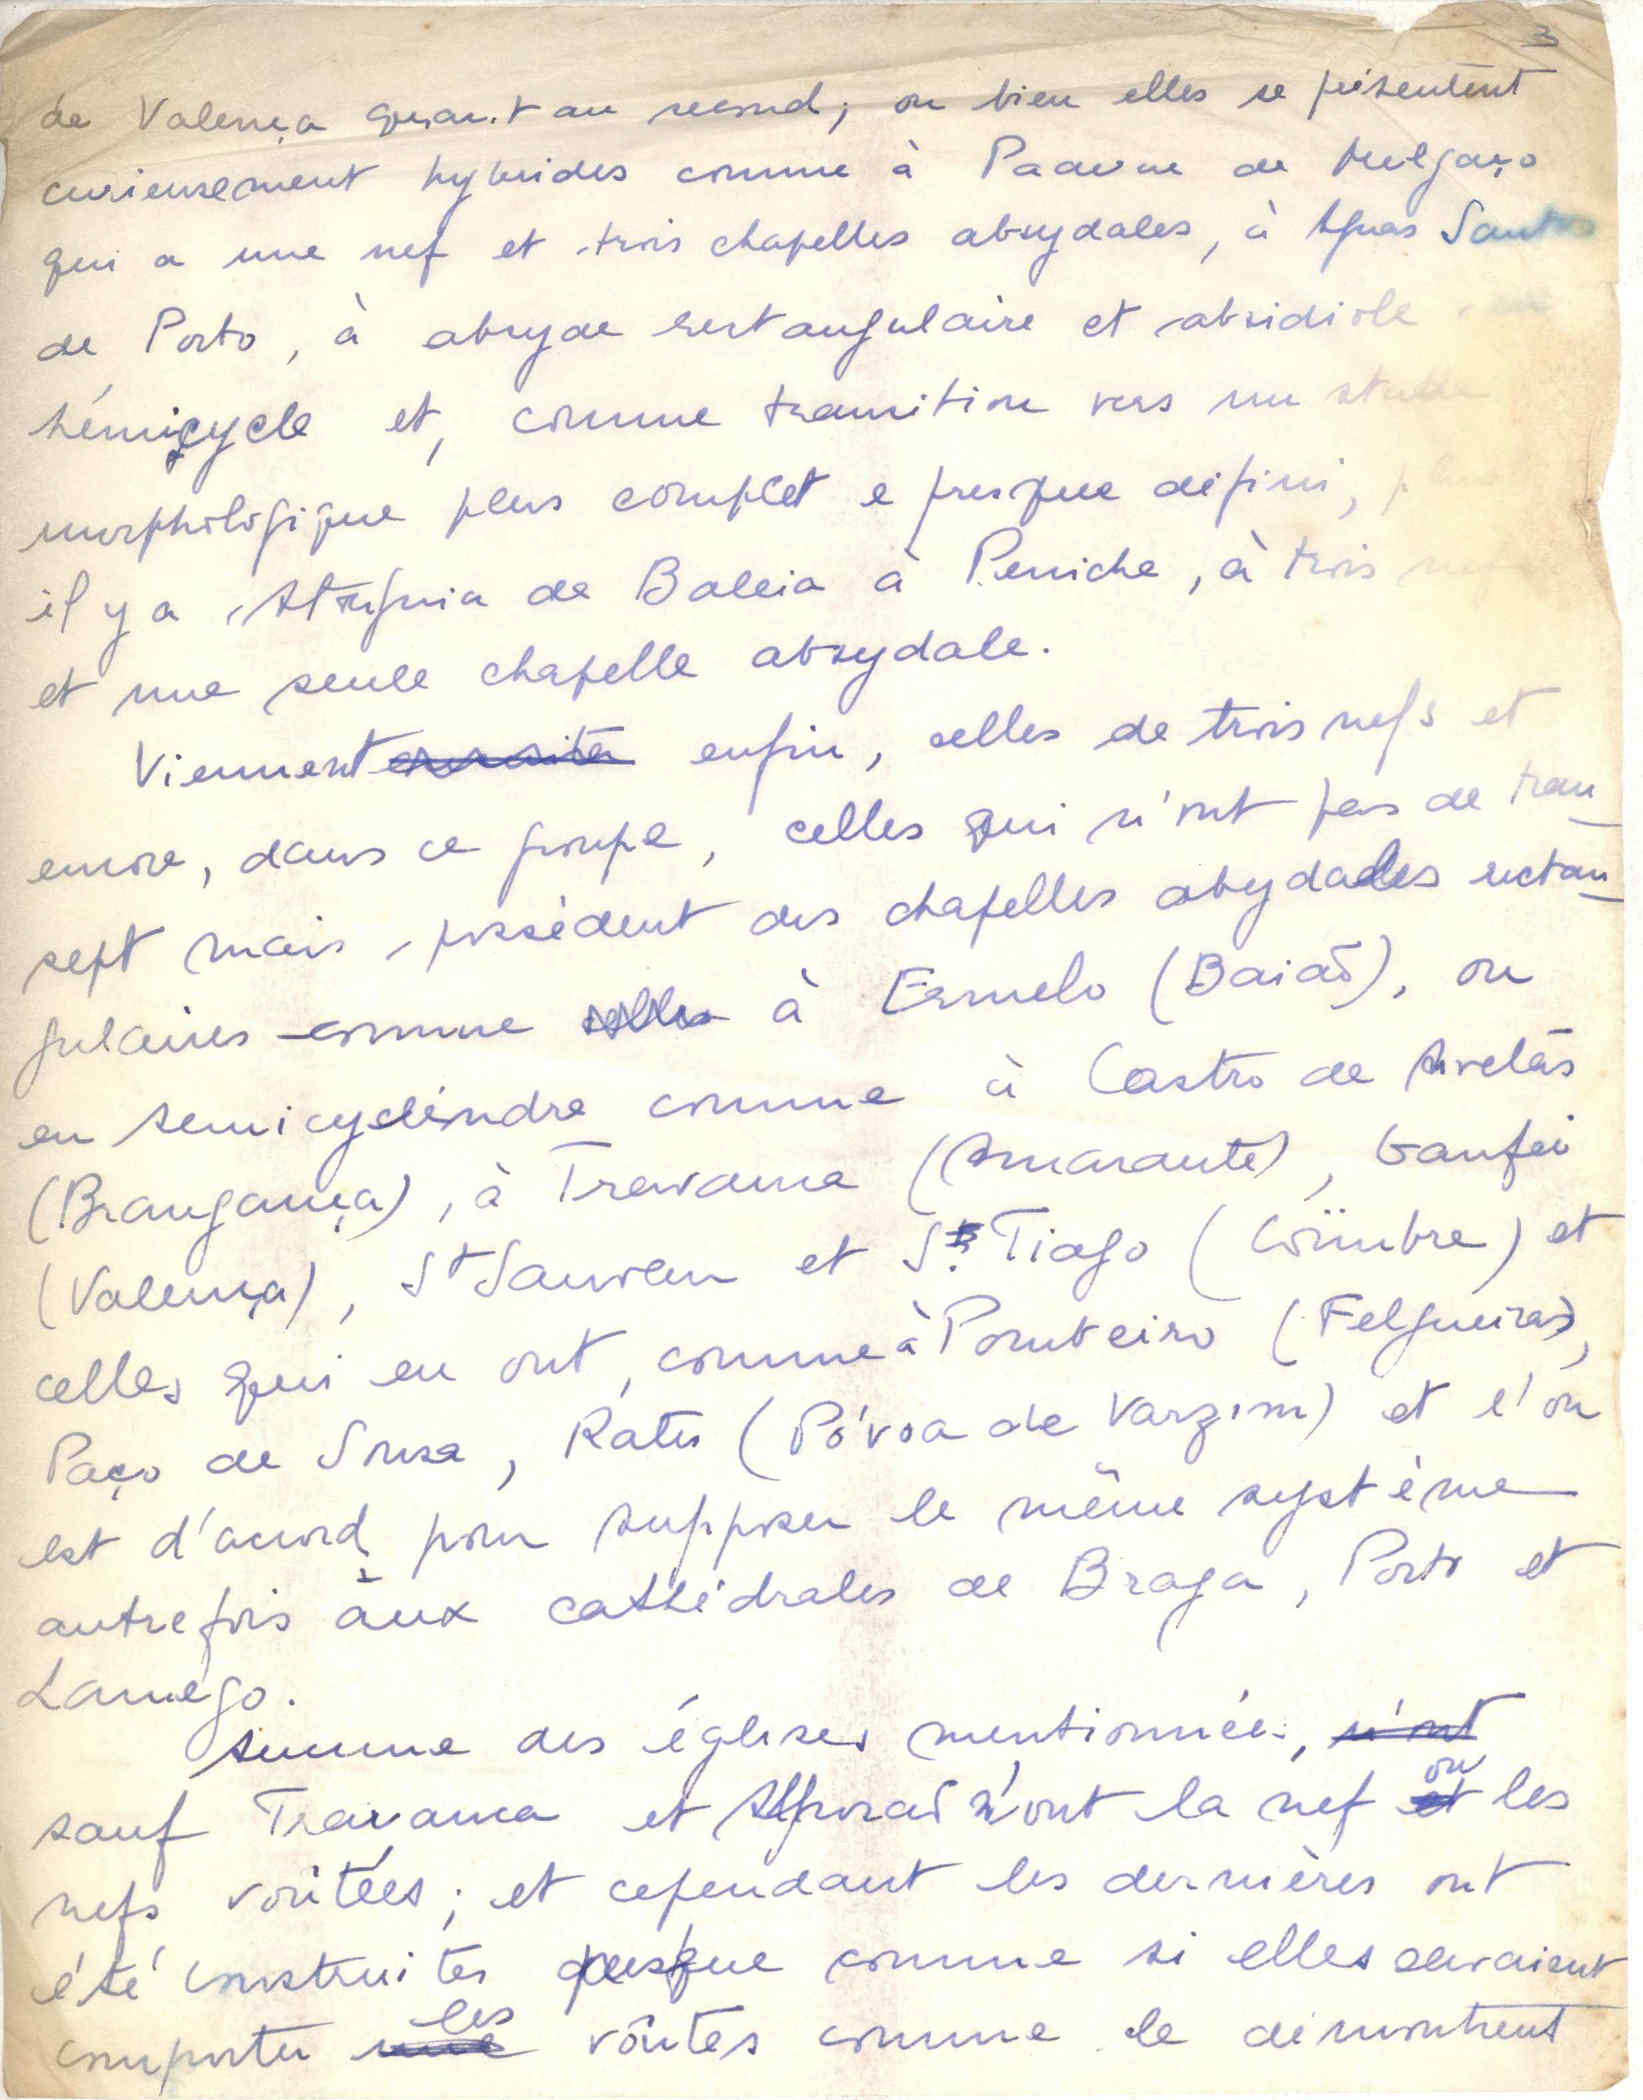 3
de Valença quant au second; ou bien elles se présentent
curieusement hybrides comme à Paderne de Melgaço
qui a une nef et trois chapelles absydales, à Aguas Santas
de Porto, à absyde rectangulaire et absidiole en
hémicycle et, comme transition vers un stade
morphologique plus complet e presque défini,
il y a Atouguia de Baleia à Peniche, à trois nefs
et une seule chapelle absydale.
Viennent ensuite enfin, celles de trois nefs et
encore, dans ce groupe, celles qui n'ont pas de tran_
sept mais possèdent des chapelles absydales rectan_
gulaires comme celles à Ermelo (Baião), ou
en semicylindre comme à Castro de Avelãs
(Bragança), à Travanca (Amarante), Ganfei
(Valença), St Sauveur et S. Tiago (Coïmbre) et
celles qui en ont, comme à Pombeiro (Felgueiras),
Paço de Sousa, Rates (Póvoa de Varzim) et l'on
est d'acord pour supposer le même système
autrefois aux cathédrales de Braga, Porto et
Lamego.
Aucune des églises mentionnées, n'ont
sauf Travanca et n'ont la nef et ou les
nefs voûtées; et cependant les dernières ont
été construites presque comme si elles devaient
comporter une les voûtes comme le démontrent